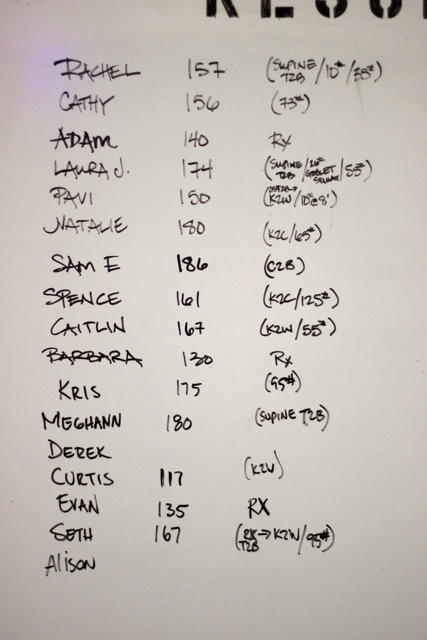 RACHEL 157 (SUPINE T2B/10#/35#)
CATHY 156 (73#)
ADAM 140 RX
LAURA J. 174 (SUPINE T2B/26# GOBLET SQUAT/55#)
PAVI 150 K2W/10#@8')
NATALIE 180 (K2C/65#)
SAM E 186 (C2B)
SPENCE 161 (K2C/125#)
CAITLIN 167 (K2W/55#)
BARBARA 130 RX
KRIS 175 (95#)
MEGHANN 180 (SUPINE T2B)
DEREK
CURTIS 117 (K2W)
EVAN 135 RX
SETH 167 (RX T2B→K2W/95#)
Alison